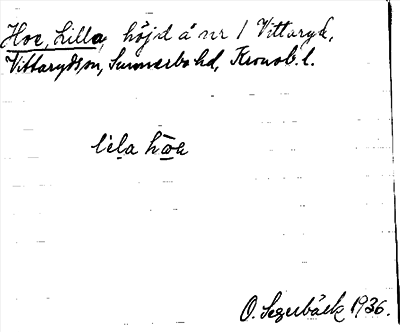 Hoe, Lilla, höjd å nr 1 Vittaryd,
Vittaryds sn, Sunnerbo hd, Kronob. l.
lila hɷe
O. Segerbäck 1936.